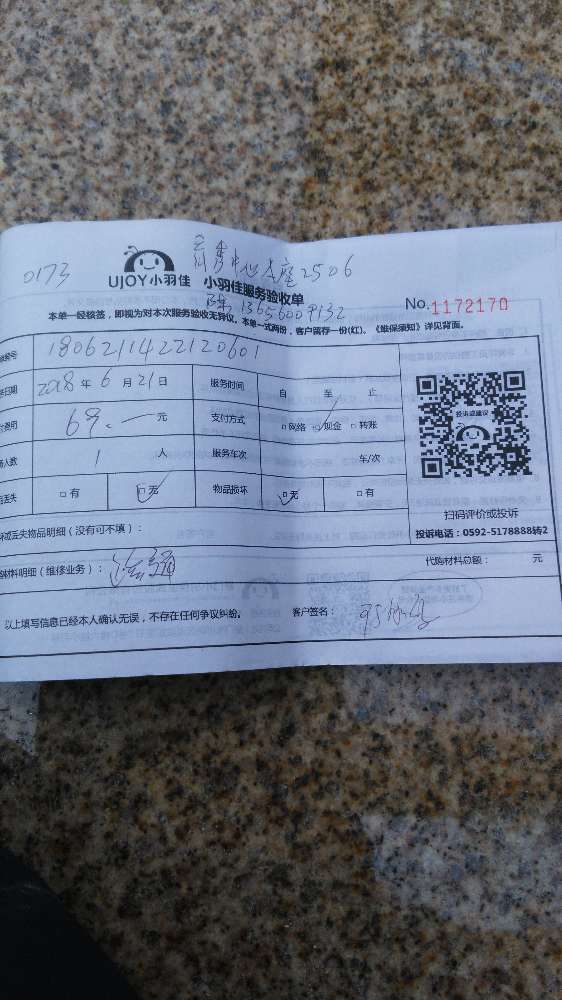 0173
座2506
UJOY小羽佳 小羽佳服务验收单
13656009132
No.1172170
本单一经核签，即视为对本次服务验收无异议。本单一式两份，客户留存一份(红)。《维保须知》详见背面。
编号 1806211422120601
日期 2018年6月21日 服务时间 自 至 止
费用 69.一元 支付方式 □网络 □现金 □转账
人数 1人 服务车次 车/次
丢失 □有 □无 物品损坏 □无 □有
投诉或建议
扫码评价或投诉
投诉电话：0592-5178888转2
坏或丢失物品明细（没有可不填）：
材料明细（维修业务）： 代购材料总额： 元
以上填写信息已经本人确认无误，不存在任何争议纠纷。 客户签名：